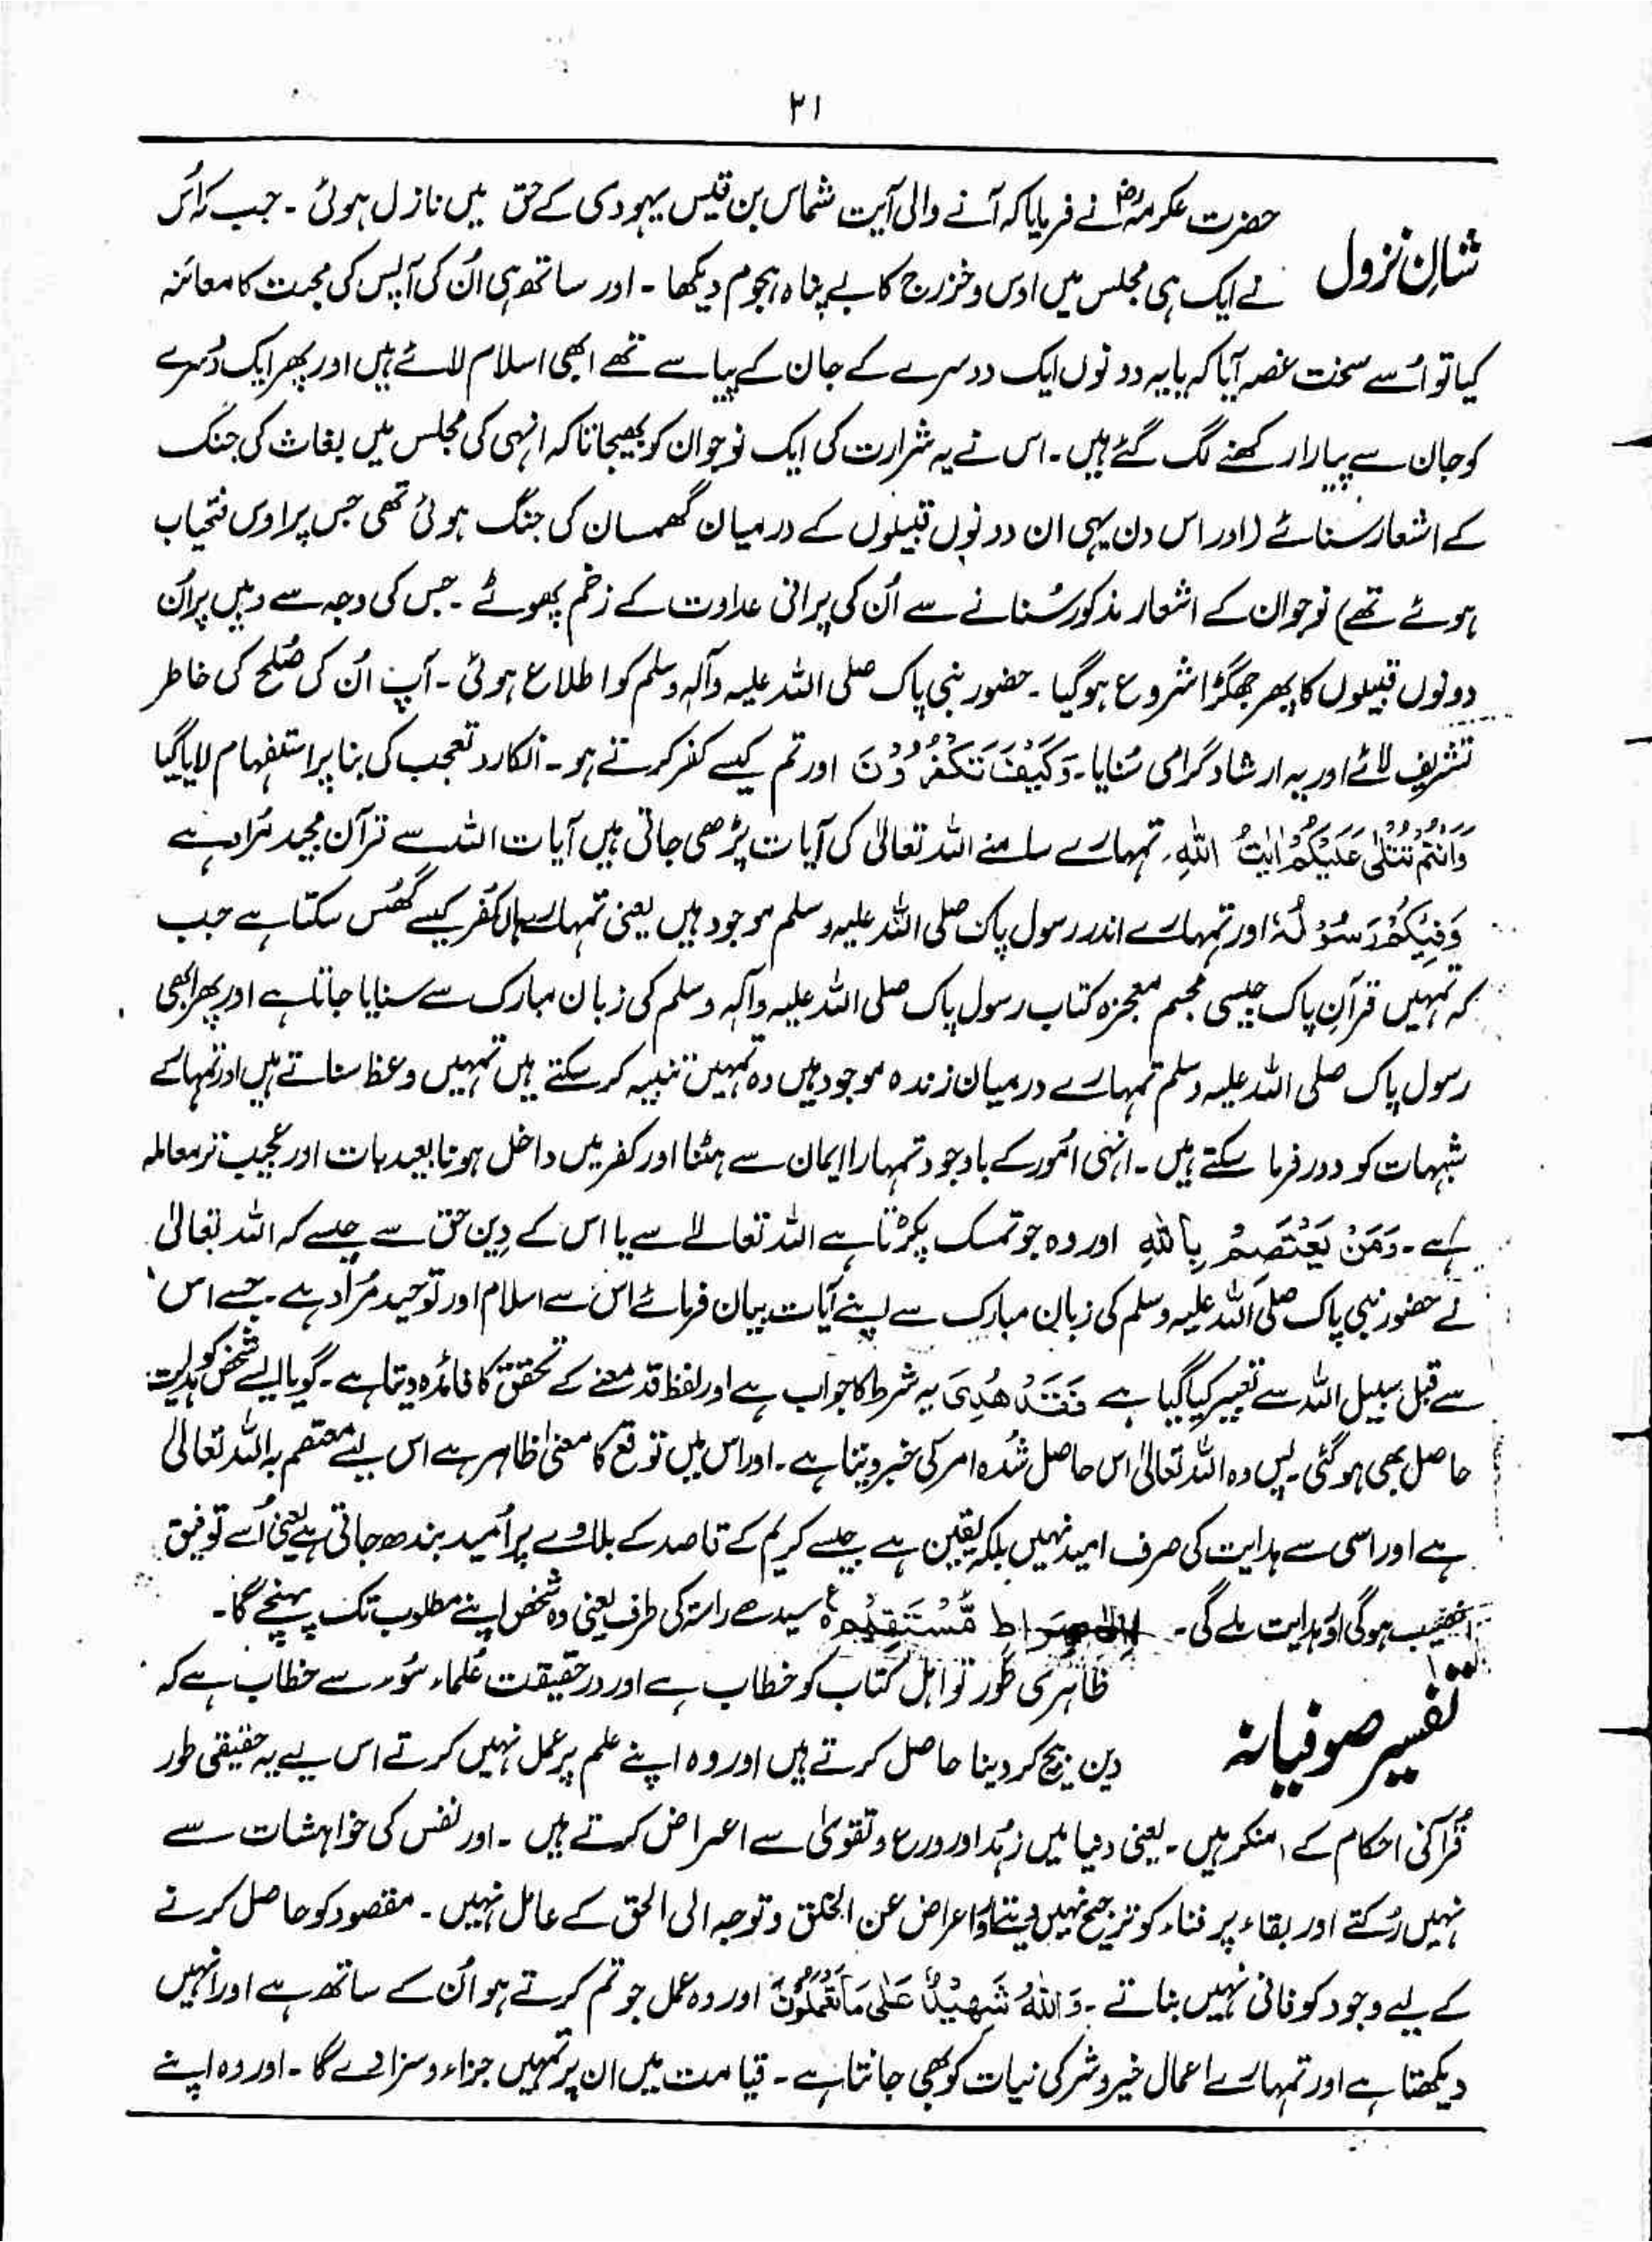 ۲۱
شانِ نزول
حضرت عکرمہؓ نے فرمایا کہ آنے والی آیت شماس بن قیس یہودی کے حق میں نازل ہوئی ۔ جب کہ اُس
نے ایک ہی مجلس میں اوس و خزرج کا بے پناہ ہجوم دیکھا ۔ اور ساتھ ہی اُن کی آپس کی محبت کا معائنہ
کیا تو اُسے سخت غصہ آیا کہ یا یہ دونوں ایک دوسرے کے جان کے پیاسے تھے ابھی اسلام لائے ہیں اور پھر ایک دُسرے
کو جان سے پیارا رکھنے لگ گئے ہیں ۔ اس نے یہ شرارت کی ایک نوجوان کو بھیجا تاکہ انہی کی مجلس میں بغاث کی جنگ
کے اشعار سنائے (اور اس دن یہی ان دونوں قبیلوں کے درمیان گھمسان کی جنگ ہوئی تھی جس پر اوس فتحیاب
ہوئے تھے) نوجوان کے اشعار مذکور سُنانے سے اُن کی پرانی عداوت کے زخم پھوٹے ۔ جس کی وجہ سے وہیں پر اُن
دونوں قبیلوں کا پھر جھگڑا شروع ہو گیا ۔ حضور نبی پاک صلی اللہ علیہ وآلہ وسلم کو اطلاع ہوئی ۔ آپ اُن کی صُلح کی خاطر
تشریف لائے اور یہ ارشاد گرامی سُنایا ۔ وَكَيْفَ تَكْفُرُوْنَ اور تم کیسے کفر کرتے ہو ۔ انکار و تعجب کی بنا پر استفہام لایا گیا
وَاَنْتُمْ تُتْلٰى عَلَيْكُمْ اٰيٰتُ اللّٰهِ، تمہارے سامنے اللہ تعالیٰ کی آیات پڑھی جاتی ہیں آیات اللہ سے قرآن مجید مُراد ہے
وَفِيْكُمْ رَسُوْلُهٗ اور تمہارے اندر رسول پاک صلی اللہ علیہ وسلم موجود ہیں یعنی تمہارے ہاں کُفر کیسے گھُس سکتا ہے جب
کہ تمہیں قرآنِ پاک جیسی مجسم معجزہ کتاب رسول پاک صلی اللہ علیہ وآلہ وسلم کی زبان مبارک سے سنایا جاتا ہے اور پھر ابھی
رسول پاک صلی اللہ علیہ وسلم تمہارے درمیان زندہ موجود ہیں وہ تمہیں تنبیہ کر سکتے ہیں تمہیں وعظ سناتے ہیں اور تمہارے
شبہات کو دور فرما سکتے ہیں ۔ انہی اُمور کے باوجود تمہارا ایمان سے ہٹنا اور کفر میں داخل ہونا بعید بات اور عجیب تر معاملہ
ہے ۔ وَمَنْ يَّعْتَصِمْ بِاللّٰهِ اور وہ جو تمسک پکڑتا ہے اللہ تعالےٰ سے یا اس کے دِین حق سے جسے کہ اللہ تعالیٰ
نے حضور نبی پاک صلی اللہ علیہ وسلم کی زبان مبارک سے اپنے آیات بیان فرمائے اس سے اسلام اور توحید مُراد ہے ۔ جسے اس
سے قبل سبیل اللہ سے تعبیر کیا گیا ہے فَقَدْ هُدِيَ یہ شرط کا جواب ہے اور لفظ قد معنے کے تحقق کا فائدہ دیتا ہے ۔ گویا ایسے شخص کو ہدایت
حاصل بھی ہو گئی ۔ پس وہ اللہ تعالیٰ اس حاصل شُدہ امر کی خبر دیتا ہے ۔ اور اس میں توقع کا معنیٰ ظاہر ہے اس لیے معتصم بہ اللہ تعالیٰ
ہے اور اسی سے ہدایت کی صرف امید نہیں بلکہ یقین ہے جیسے کریم کے قاصد کے بلاوے پر اُمید بندھ جاتی ہے یعنی اُسے توفیق
نصیب ہو گی اور ہدایت ملے گی ۔ اِلٰى صِرَاطٍ مُّسْتَقِيْمٍ ۝ سیدھے راستہ کی طرف یعنی وہ شخص اپنے مطلوب تک پہنچے گا ۔
تفسیر صوفیانہ
ظاہری طَور تو اہل کتاب کو خطاب ہے اور درحقیقت عُلماء سُوء سے خطاب ہے کہ
دین بیچ کر دینا حاصل کرتے ہیں اور وہ اپنے علم پر عمل نہیں کرتے اس لیے یہ حقیقی طور
قُرآنی احکام کے منکر ہیں ۔ یعنی دنیا میں زہد اور ورع و تقویٰ سے اعراض کرتے ہیں ۔ اور نفس کی خواہشات سے
نہیں رُکتے اور بقاء پر فناء کو ترجیح نہیں دیتے اور اعراض عن الخلق و توجہ الی الحق کے عامل نہیں ۔ مقصود کو حاصل کرنے
کے لیے وجود کو فانی نہیں بناتے ۔ وَاللّٰهُ شَهِيْدٌ عَلٰى مَا تَعْمَلُوْنَ اور وہ عمل جو تم کرتے ہو اُن کے ساتھ ہے اور انہیں
دیکھتا ہے اور تمہارے اعمال خیر و شر کی نیات کو بھی جانتا ہے ۔ قیامت میں ان پر تمہیں جزاء و سزا دے گا ۔ اور وہ اپنے